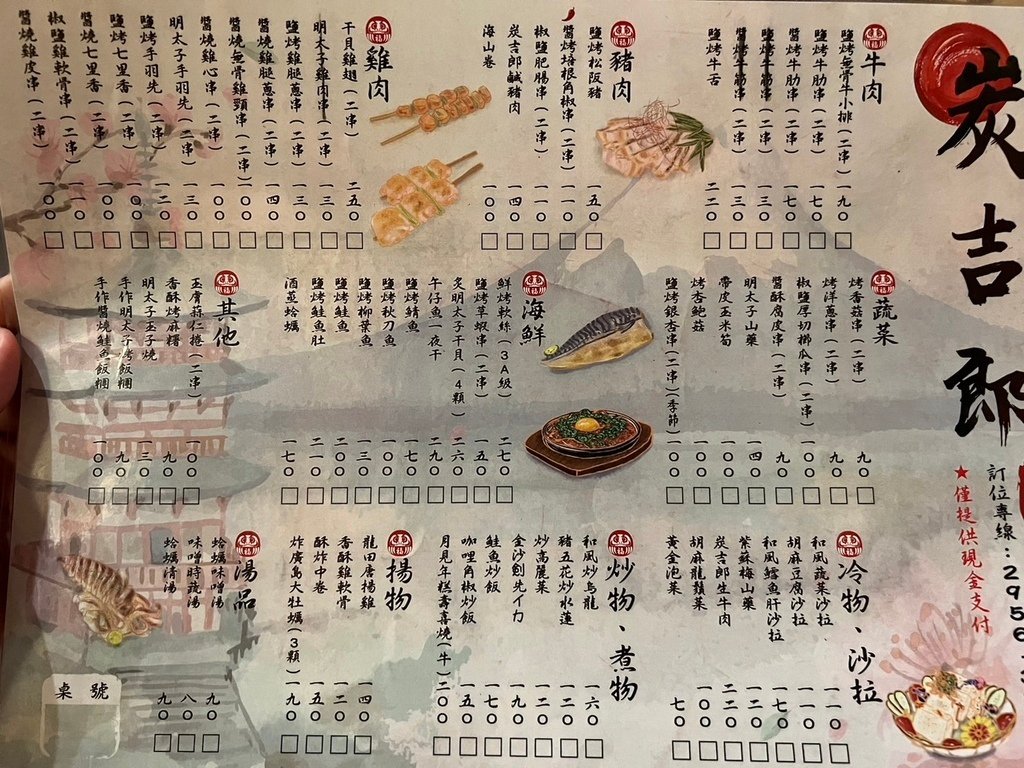 炭吉郎
訂位專線:2956
★僅提供現金支付
牛肉
鹽烤無骨牛小排(二串) 一九〇
鹽烤牛肋串(二串) 一七〇
醬烤牛肋串(二串) 一七〇
鹽烤牛筋串(二串) 一三〇
醬烤牛筋串(二串) 一三〇
鹽烤牛舌 二二〇
豬肉
鹽烤松阪豬 一五〇
醬烤培根角椒串(二串) 一一〇
椒鹽肥腸串(二串) 一一〇
炭吉郎鹹豬肉 一四〇
海山卷 一〇〇
雞肉
干貝雞翅(二串) 二五〇
明太子雞肉串(二串) 一三〇
鹽烤雞腿蔥串(二串) 一三〇
醬燒雞腿蔥串(二串) 一四〇
醬燒無骨雞頸串(二串) 一〇〇
醬燒雞心串(二串) 一〇〇
明太子手羽先(二串) 一三〇
鹽烤手羽先(二串) 一二〇
鹽烤七里香(二串) 一〇〇
醬燒七里香(二串) 一〇〇
椒鹽雞軟骨串(二串) 一一〇
醬燒雞皮串(二串) 一〇〇
蔬菜
烤香菇串(二串) 九〇
烤洋蔥串(二串) 九〇
椒鹽厚切櫛瓜串(二串) 一〇〇
醬酥腐皮串(二串) 九〇
明太子山藥 一四〇
帶皮玉米筍 一〇〇
烤杏鮑菇 一〇〇
鹽烤銀杏串(二串)(季節) 一〇〇
海鮮
鮮烤軟絲(3A級) 二七〇
鹽烤草蝦串(二串) 一五〇
炙明太子干貝(4顆) 二六〇
午仔魚一夜干 二九〇
鹽烤鯖魚 一七〇
鹽烤秋刀魚 一〇〇
鹽烤柳葉魚 一三〇
鹽烤鮭魚 二〇〇
鹽烤鮭魚肚 二一〇
酒蒸蛤蠣 一七〇
其他
玉膏蒜仁捲(二串) 一〇〇
香酥烤麻糬 一〇〇
明太子玉子燒 一三〇
手作明太子烤飯糰 九〇
手作醬燒鮭魚飯糰 一〇〇
冷物、沙拉
和風蔬菜沙拉 一一〇
胡麻豆腐沙拉 一一〇
和風鱈魚肝沙拉 一七〇
紫蘇梅山藥 一二〇
炭吉郎生牛肉 二二〇
胡麻龍鬚菜 一〇〇
黃金泡菜 七〇
炒物、煮物
和風炒烏龍 一六〇
豬五花炒水蓮 一二〇
炒高麗菜 一二〇
金沙劍先イカ 一九〇
鮭魚炒飯 一七〇
咖哩角椒炒飯 一五〇
月見年糕壽喜燒(牛) 二〇〇
揚物
龍田唐揚雞 一四〇
香酥雞軟骨 一二〇
酥炸中卷 一五〇
炸廣島大牡蠣(3顆) 一九〇
湯品
蛤蠣味噌湯 九〇
味噌時蔬湯 八〇
蛤蠣清湯 九〇
桌號